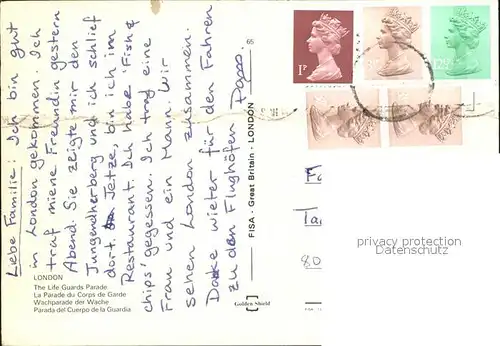 Liebe Familie: Ich bin gut
in London gekommen. Ich
traf miene Freundin gestern
Abend. Sie zeigte mir den
Jungendherberg und ich schlief
dort. Jetze, bin ich im
Restaurant. Ich habe 'Fish &
chips' gegessen. Ich traf eine
Frau und ein Mann. Wir
sehen London zusammen.
Danke wieter für den Fahren
zu den Flughöfen
LONDON
The Life Guards Parade
La Parade du Corps de Garde
Wachparade der Wache
Parada del Cuerpo de la Guardia
65
FISA - Great Britain - LONDON
Golden Shield
1P
12½P
80
privacy protection
Datenschutz